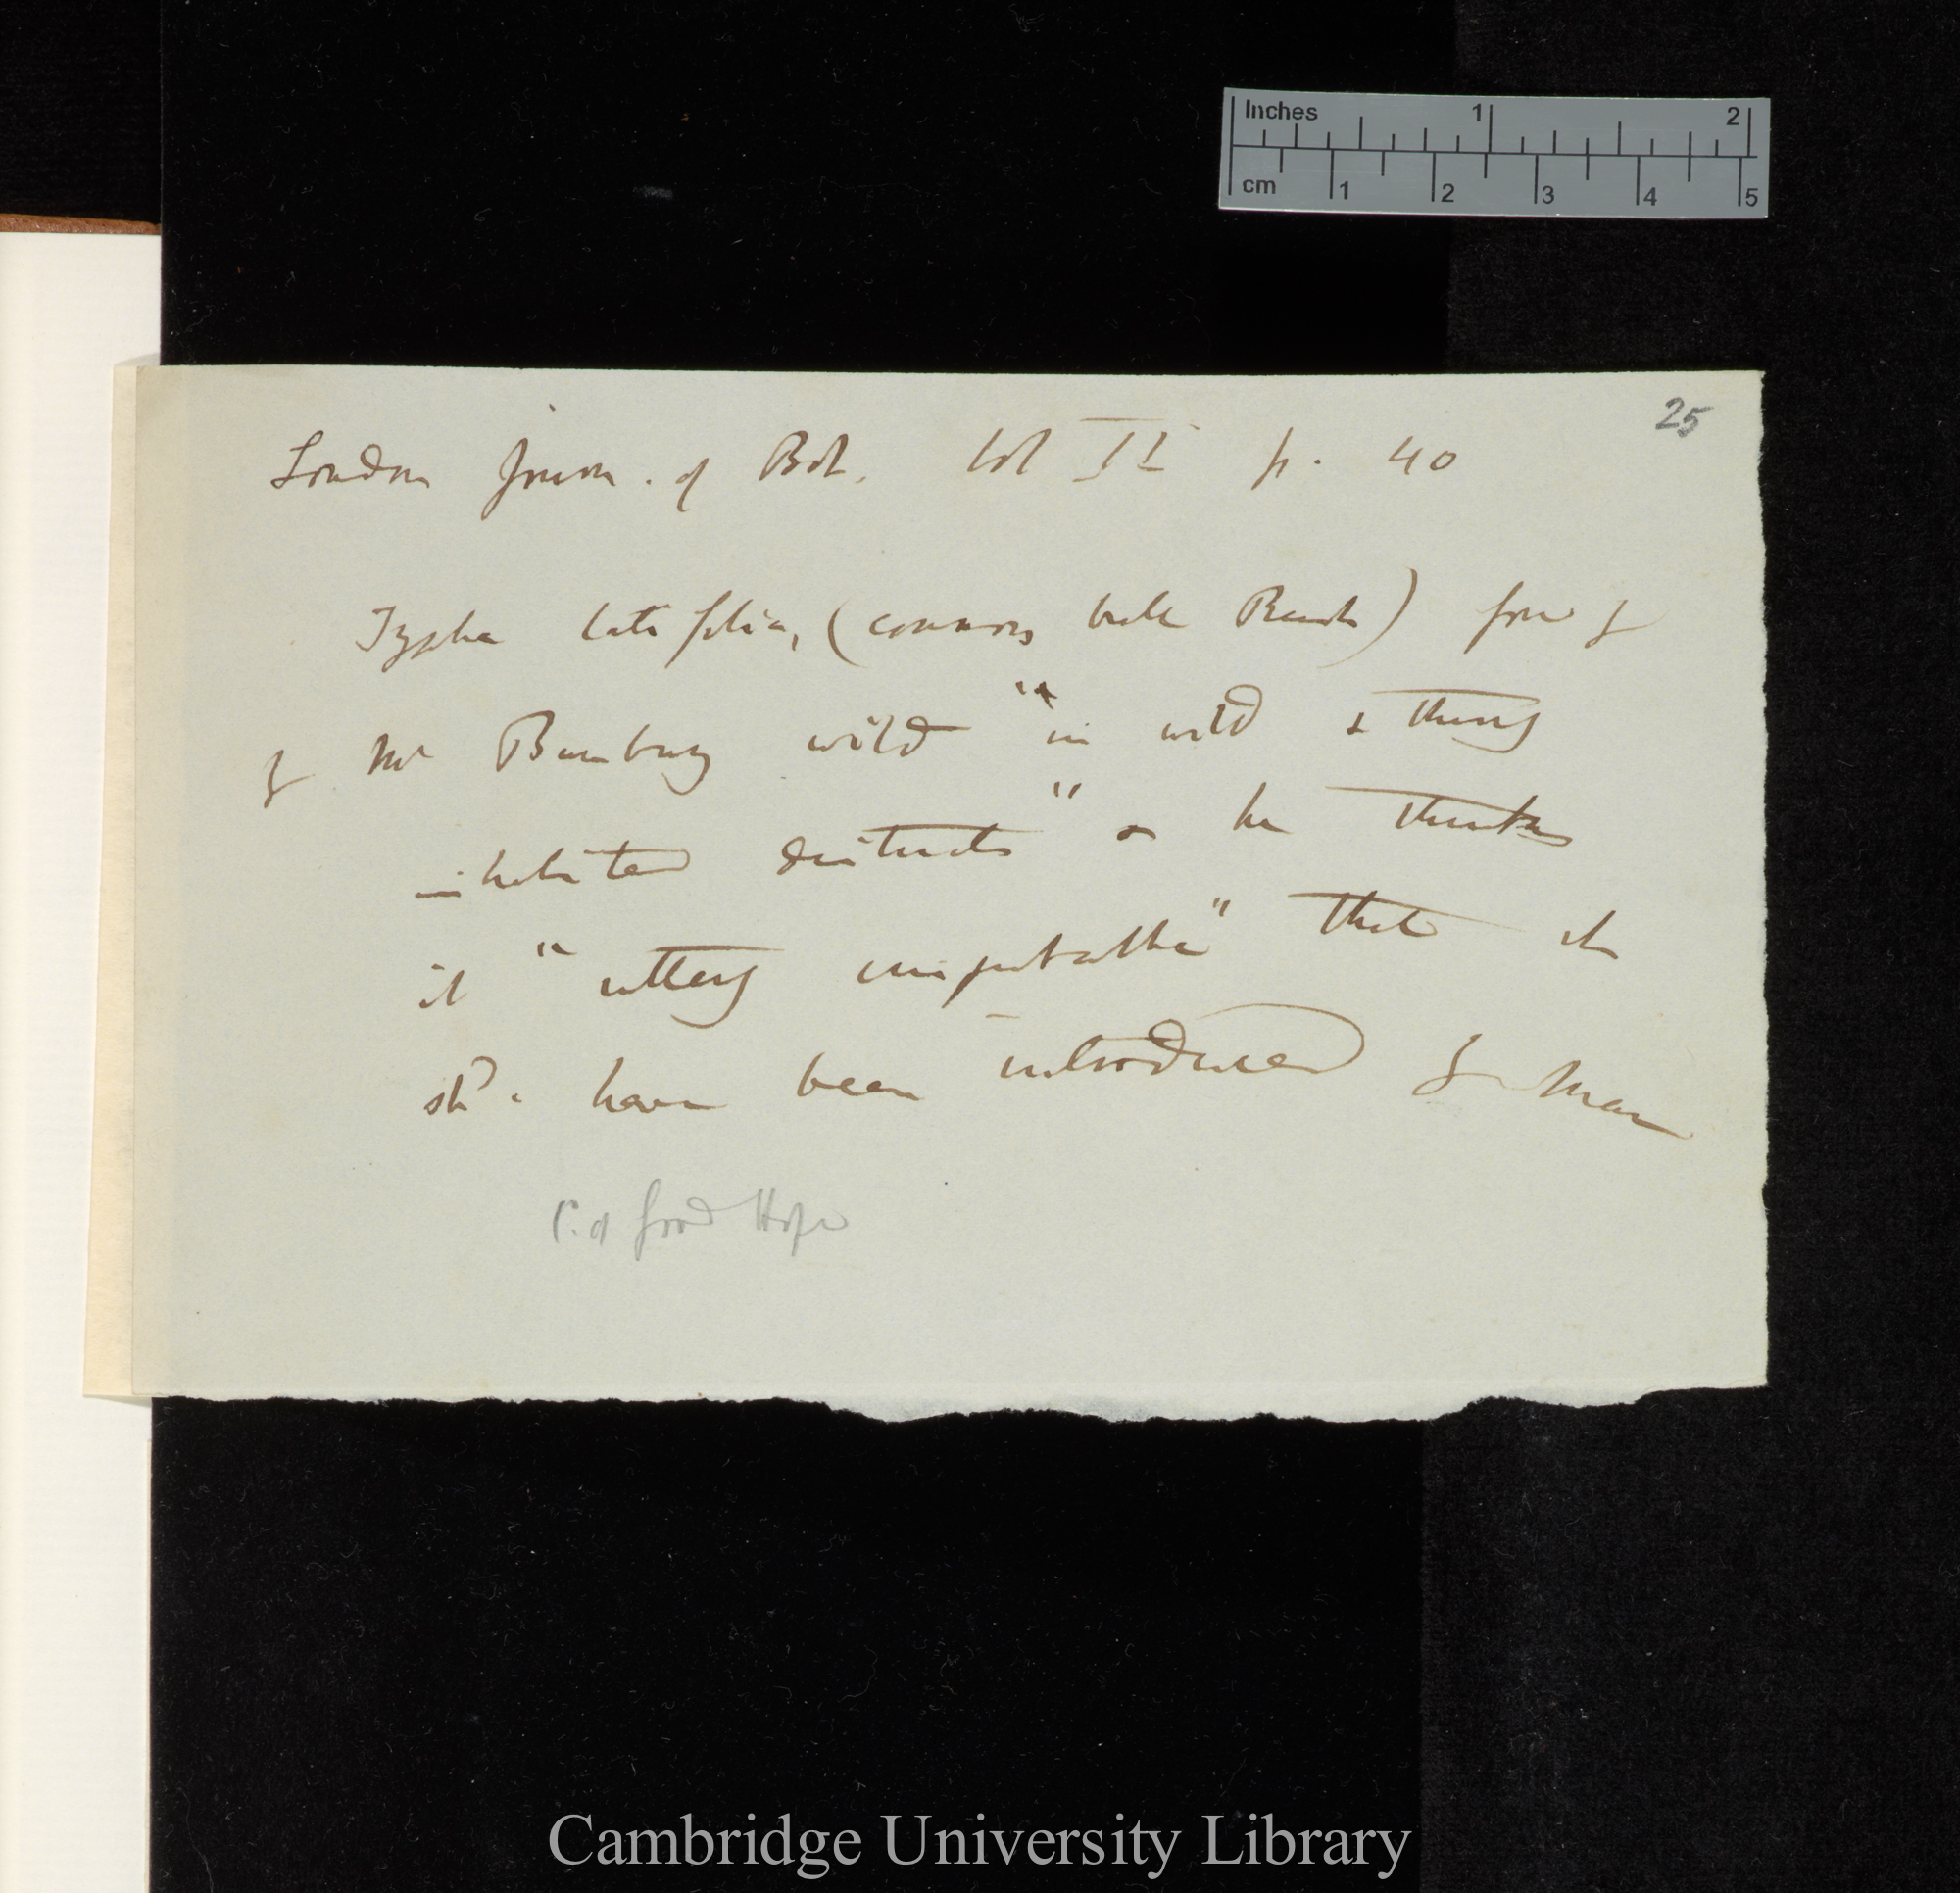 Inches 1 2
cm 1 2 3 4 5
25
London Journ. of Bot. Vol II p. 40
Typha latifolia, (common bull Rush) found by
by Mr Bunbury wild "in wild & thinly
inhabited districts" & he thinks
it "utterly improbable" that it
shd. have been introduced by Man
C. of Good Hope
Cambridge University Library